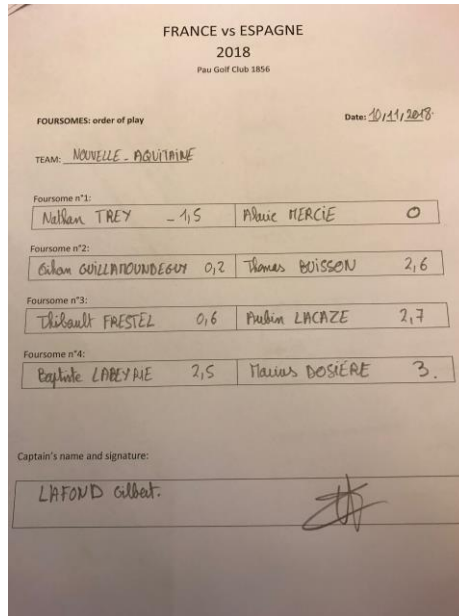 FRANCE vs ESPAGNE
2018
Pau Golf Club 1856
FOURSOMES: order of play Date: 10/11/2018
TEAM: NOUVELLE - AQUITAINE
Foursome n°1:
Nathan TREY - 1,5 Alaric MERCIÉ 0
Foursome n°2:
GUILLAMOUNDEGUY 0,2 Thomas BUISSON 2,6
Foursome n°3:
Thibault FRESTEL 0,6 Aubin LACAZE 2,7
Foursome n°4:
Baptiste LABEYRIE 2,5 Marius DOSIÉRE 3.
Captain's name and signature:
LAFOND Gilbert.